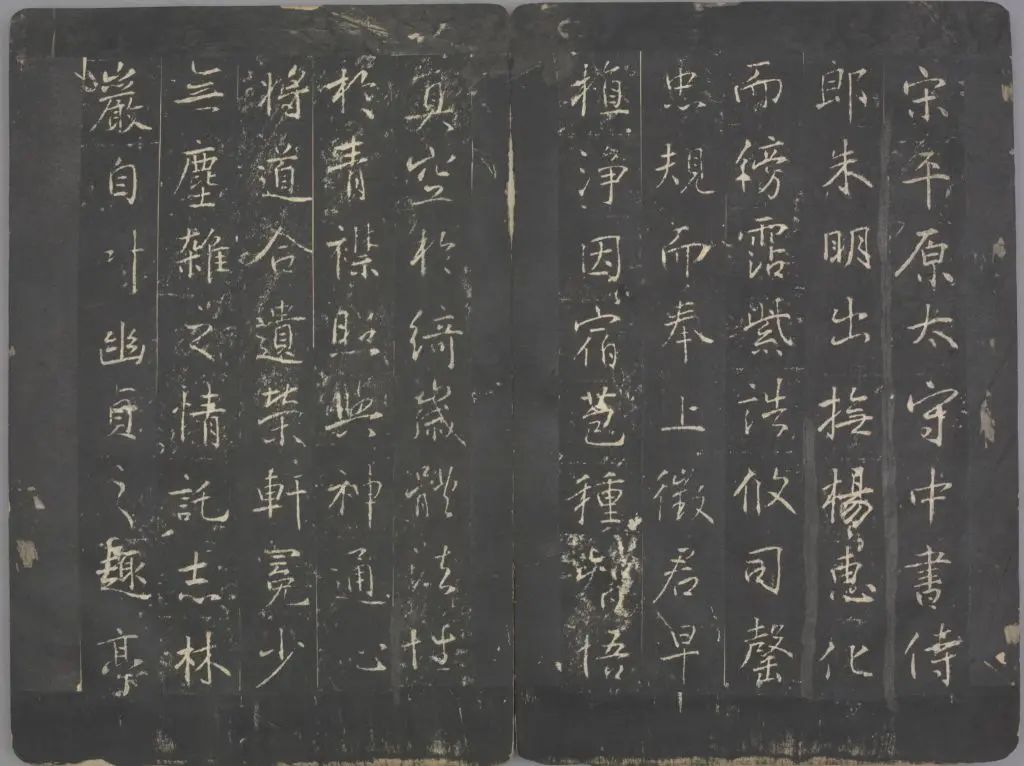 宋平原太守中書侍
郎朱明出撫楊惠化
而傍霑紫誥攸司罄
忠規而奉上徵君早
植淨因宿苞種智悟
真空於綺歲體法性
於青襟照與神通心
將道合遺榮軒冕少
无塵雜之情託志林
巖自叶幽貞之趣亭